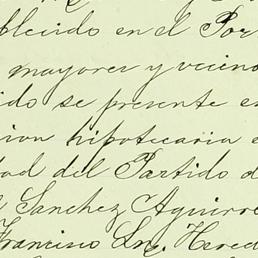 blecido en el Por
mayores y vecino
ido se presente e
cion hipotecaria e
dad del Partido d
Sanchez Aguirre
Francisco Lz. Hered